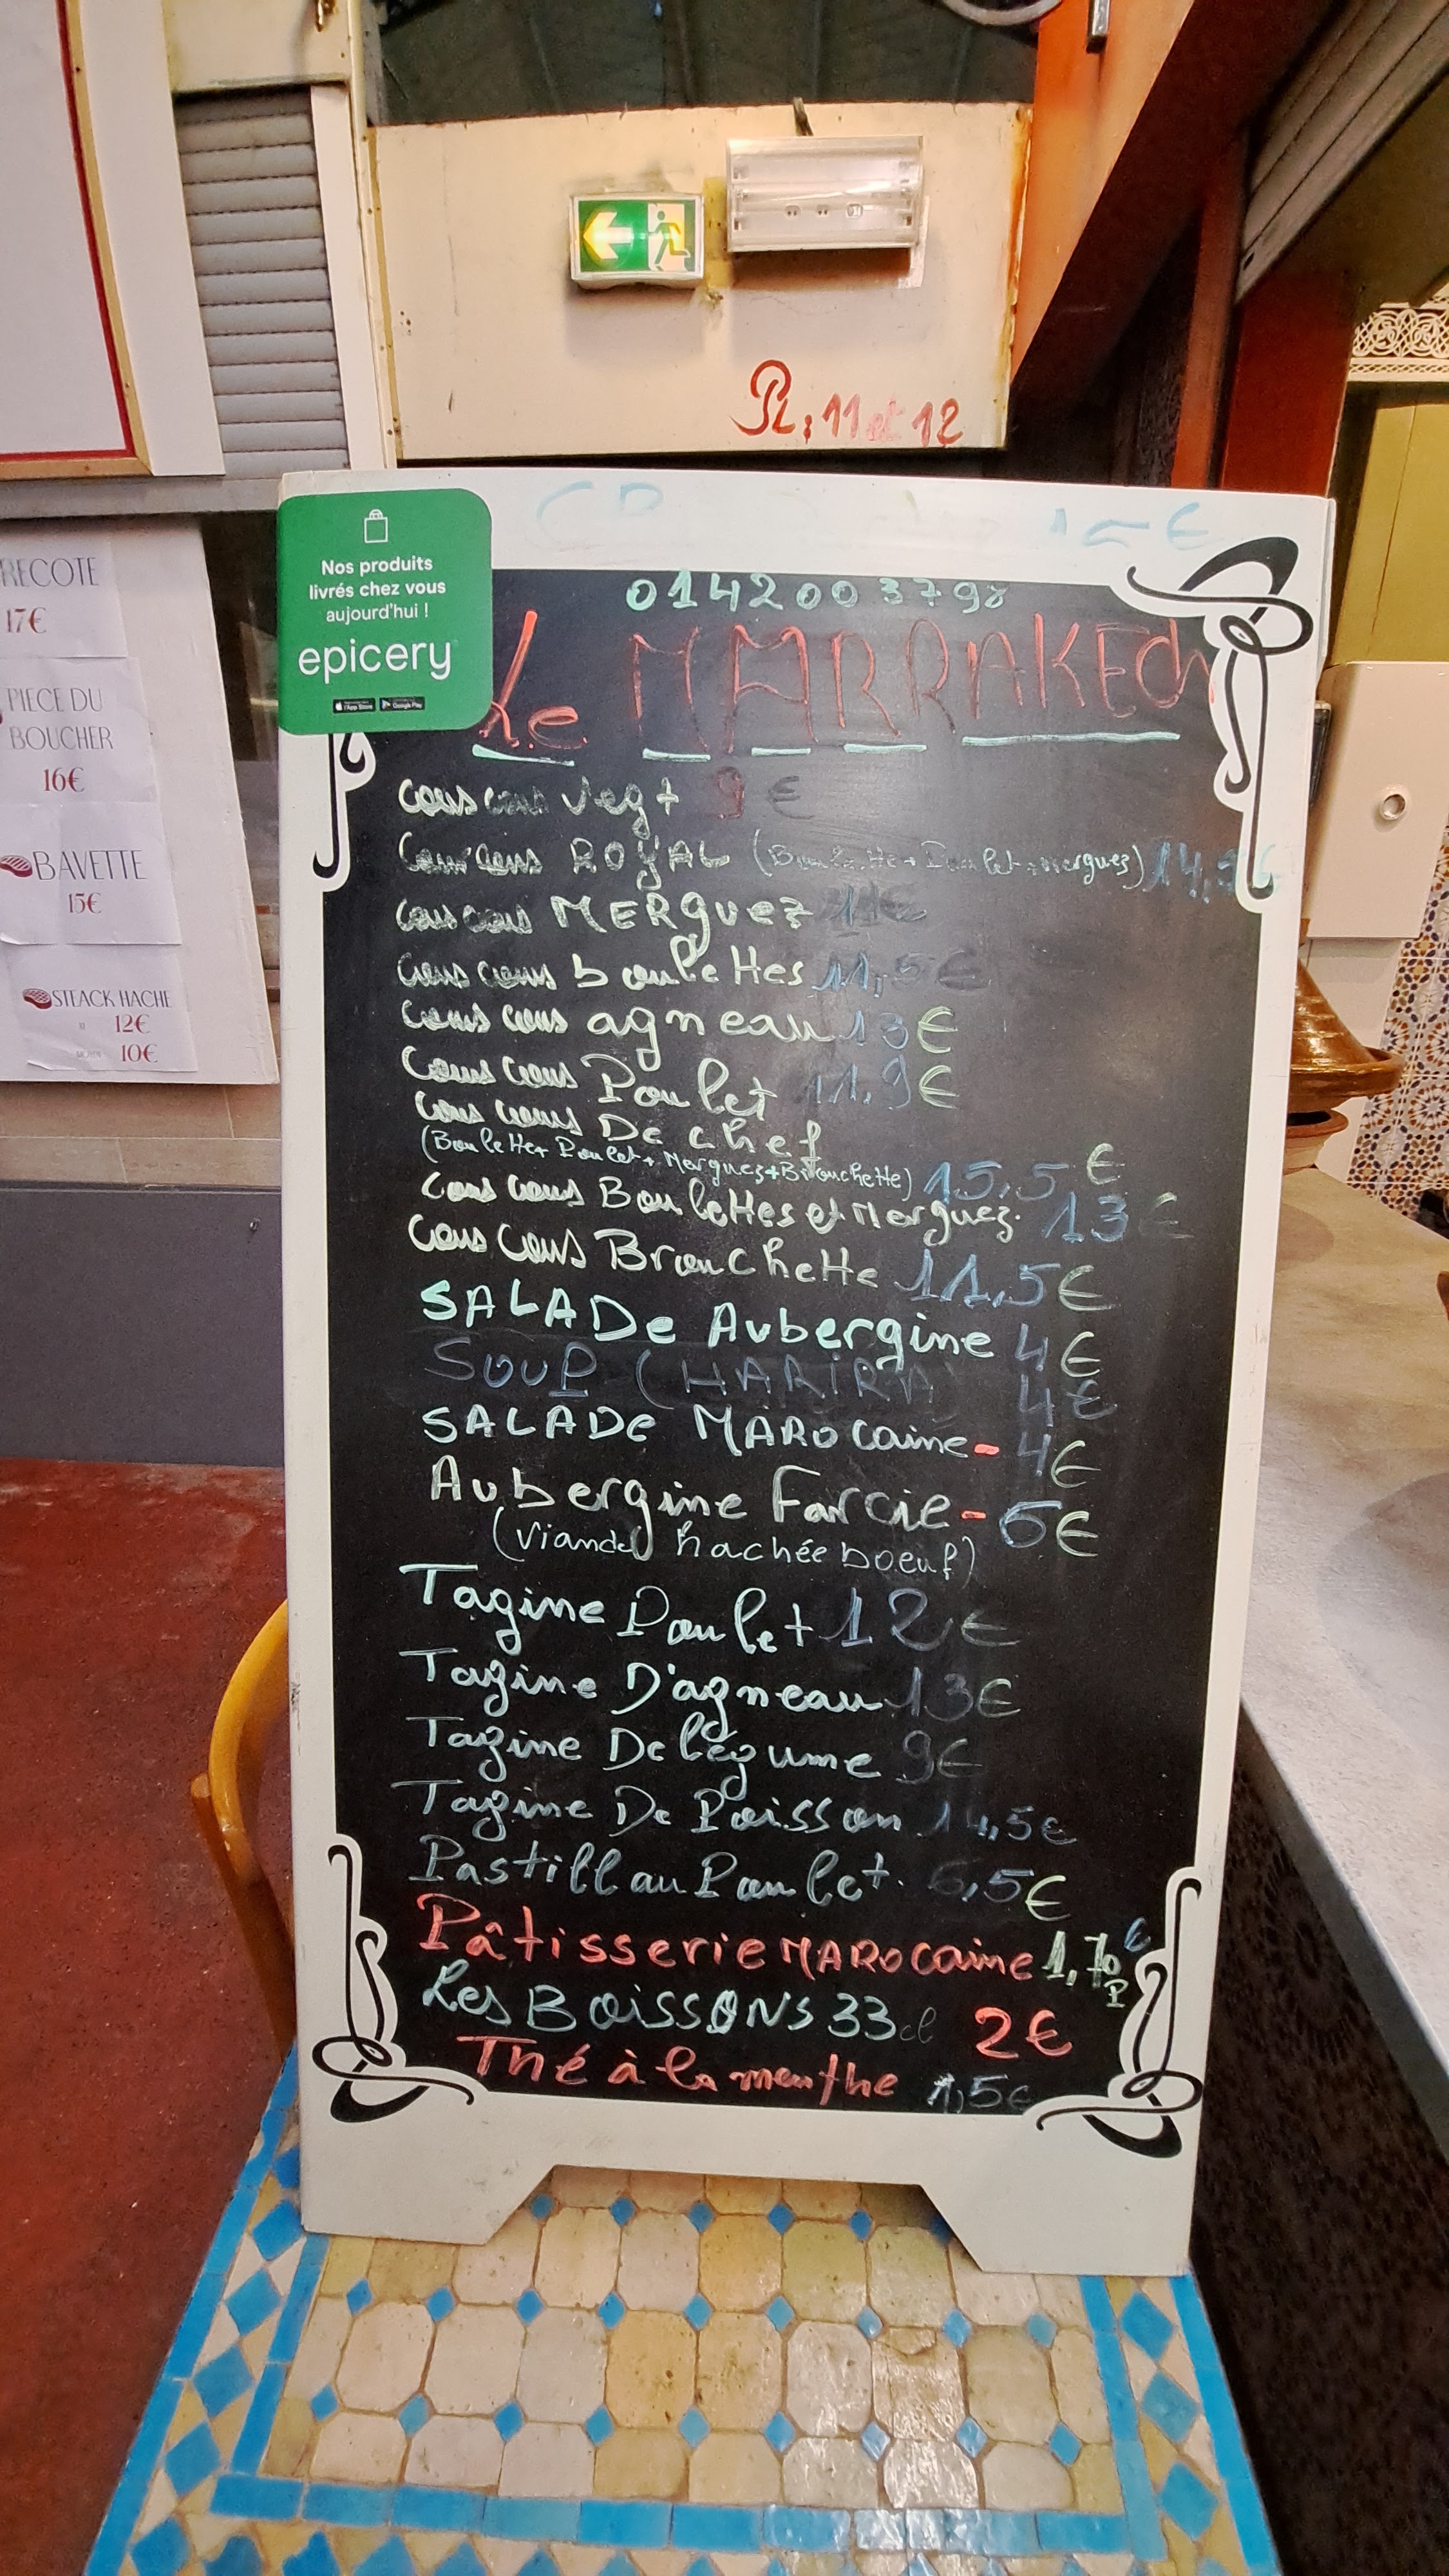 PL: 11 et 12
Nos produits
livrés chez vous
aujourd'hui !
epicery
l'App Store
Google Play
0142003798
Le MARRAKECh
Cous cous vegt 9 €
Cous cous ROYAL (Boulette+Poulet+merguez) 14,5€
Cous cous MERguez
Cous cous boulettes 11,5€
Cous cous agneau 13€
Cous cous Poulet 11,9€
Cous cous De chef
(Boulette+ Poulet+ Merguez+Brouchette) 15,5 €
Cous cous Boulettes et Merguez. 13€
Cous Cous BrouchetteE 11,5€
SALADe Aubergine 4€
SOUP (HARIRA) 4€
SALADe MAROcaine- 4€
Aubergine Farcie- 6€
(viande hachée boeuf)
Tagine Poulet 12€
Tagine D'agneau 13€
Tagine De légume 9€
Tagine De Poisson 14,5€
Pastill au Poulet. 6,5€
Pâtisserie MAROcaine 1,70€ P
Les BOISSONS 33cl 2€
Thé à la menthe 1,5€
17€
PIECE DU
BOUCHER
16€
BAVETTE
15€
STEACK HACHE
12€
10€